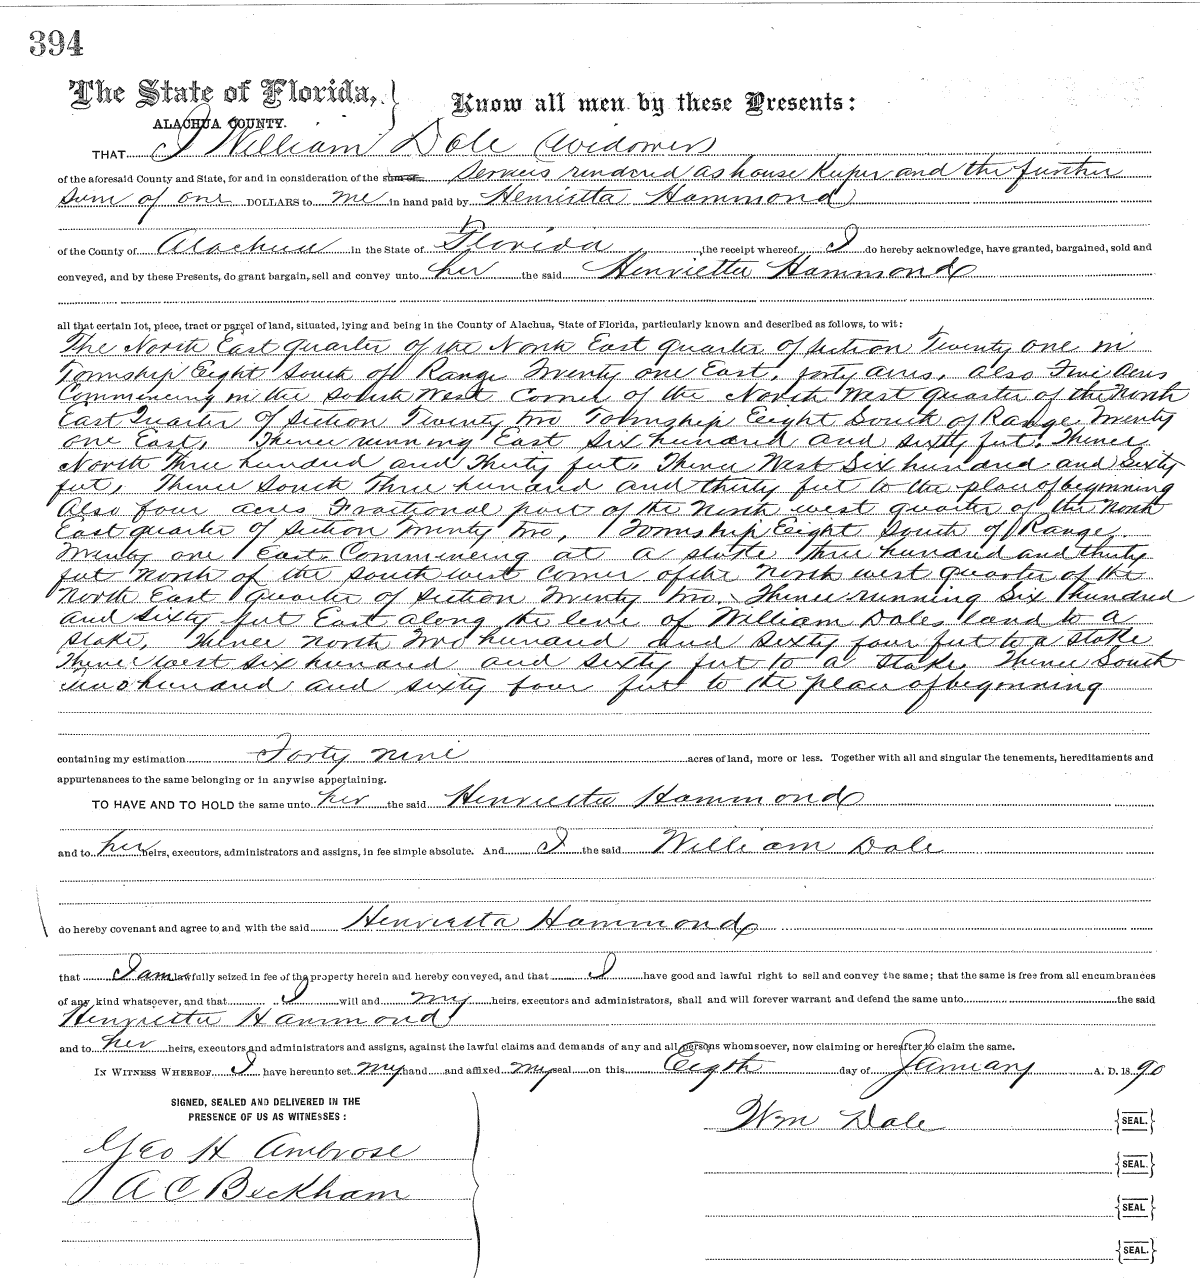 394
The State of Florida,
ALACHUA COUNTY.
Know all men by these Presents:
THAT I William Dale (Widower)
of the aforesaid County and State, for and in consideration of the sum of services rendred as house Keeper and the further
sum of one DOLLARS to me in hand paid by Henrietta Hammond
of the County of Alachua in the State of Florida, the receipt whereof I do hereby acknowledge, have granted, bargained, sold and
conveyed, and by these Presents, do grant bargain, sell and convey unto her the said Henrietta Hammond
all that certain lot, piece, tract or parcel of land, situated, lying and being in the County of Alachua, State of Florida, particularly known and described as follows, to wit:
The North East quarter of the North East quarter of Section Twenty one in
Township Eight South of Range Twenty one East, forty acres, also Five acres
Commencing in the South West Corner of the North West quarter of the North
East Quarter of Section Twenty two Township Eeight South of Range Twenty
one East, Thence running East Six hundred and sixty feet. Thence
North Three hundred and Thirty feet. Thence West Six hundred and Sixty
feet, Thence South Three hundred and thirty feet to the place of beginning
Also four acres Fractional part of the North west quarter of the North
East quarter of Section Twenty two, Township Eeight South of Range
Twenty one East. Commencing at a stake three hundred and thirty
feet North of the South west Corner of the North west quarter of the
North East quarter of Section Twenty two. Thence running Six hundred
and Sixty feet East along the line of William Dales land to a
stake, Thence North Two hundred and Sixty four feet to a stake
Thence West six hundred and sixty feet to a stake, Thence South
two hundred and sixty four feet to the place of beginning
containing my estimation Forty nine acres of land, more or less. Together with all and singular the tenements, hereditaments and
appurtenances to the same belonging or in anywise appertaining.
TO HAVE AND TO HOLD the same unto her the said Henrietta Hammond
and to her heirs, executors, administrators and assigns, in fee simple absolute. And I the said William Dale
do hereby covenant and agree to and with the said Henrietta Hammond
that I am lawfully seized in fee of the property herein and hereby conveyed, and that I have good and lawful right to sell and convey the same; that the same is free from all encumbrances
of any kind whatsoever, and that I will and my heirs, executors and administrators, shall and will forever warrant and defend the same unto the said
Henrietta Hammond
and to her heirs, executors and administrators and assigns, against the lawful claims and demands of any and all persons whomsoever, now claiming or hereafter to claim the same.
IN WITNESS WHEREOF I have hereunto set my hand and affixed my seal on this Eigth day of January A. D. 1890
SIGNED, SEALED AND DELIVERED IN THE
PRESENCE OF US AS WITNESSES:
Geo H Ambrose
A C Beckham
Wm Dale SEAL.
SEAL.
SEAL
SEAL.